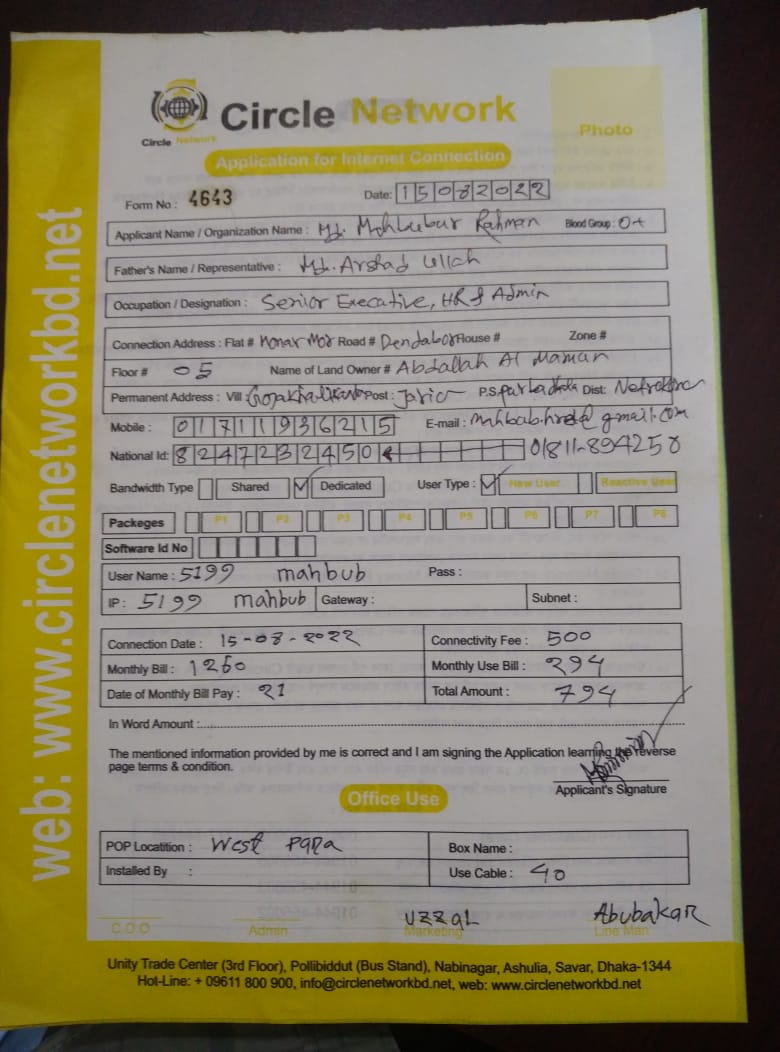 Circle Network
Circle Network
Photo
Application for Internet Connection
Form No : 4643
Date: 15082022
Applicant Name / Organization Name : Md. Mahbubur Rahman Blood Group : O+
Father's Name / Representative : Md. Arshad Ullah
Occupation / Designation : Senior Executive, HR & Admin
Connection Address : Flat # Road # Dendabor House # Zone #
Floor # 05 Name of Land Owner # Abdallah Al Mamun
Permanent Address : Vill Post : Jaria P.S. Dist: Netrokona
Mobile : 01711936215 E-mail : @gmail.com
National Id: 8247232450 01811-894258
Bandwidth Type Shared Dedicated User Type : New User Reactive User
Packeges P1 P2 P3 P4 P5 P6 P7 P8
Software Id No
User Name : 5199 mahbub Pass :
IP : 5199 mahbub Gateway : Subnet :
Connection Date : 15-08-2022 Connectivity Fee : 500
Monthly Bill : 1260 Monthly Use Bill : 294
Date of Monthly Bill Pay : 21 Total Amount : 794
In Word Amount :
The mentioned information provided by me is correct and I am signing the Application learning the reverse
page terms & condition.
Applicant's Signature
Office Use
POP Locatition : West para Box Name :
Installed By : Use Cable : 40
Uzzal Abubakar
C.O.O Admin Marketing Line Man
Unity Trade Center (3rd Floor), Pollibiddut (Bus Stand), Nabinagar, Ashulia, Savar, Dhaka-1344
Hot-Line: + 09611 800 900, info@circlenetworkbd.net, web: www.circlenetworkbd.net
web: www.circlenetworkbd.net